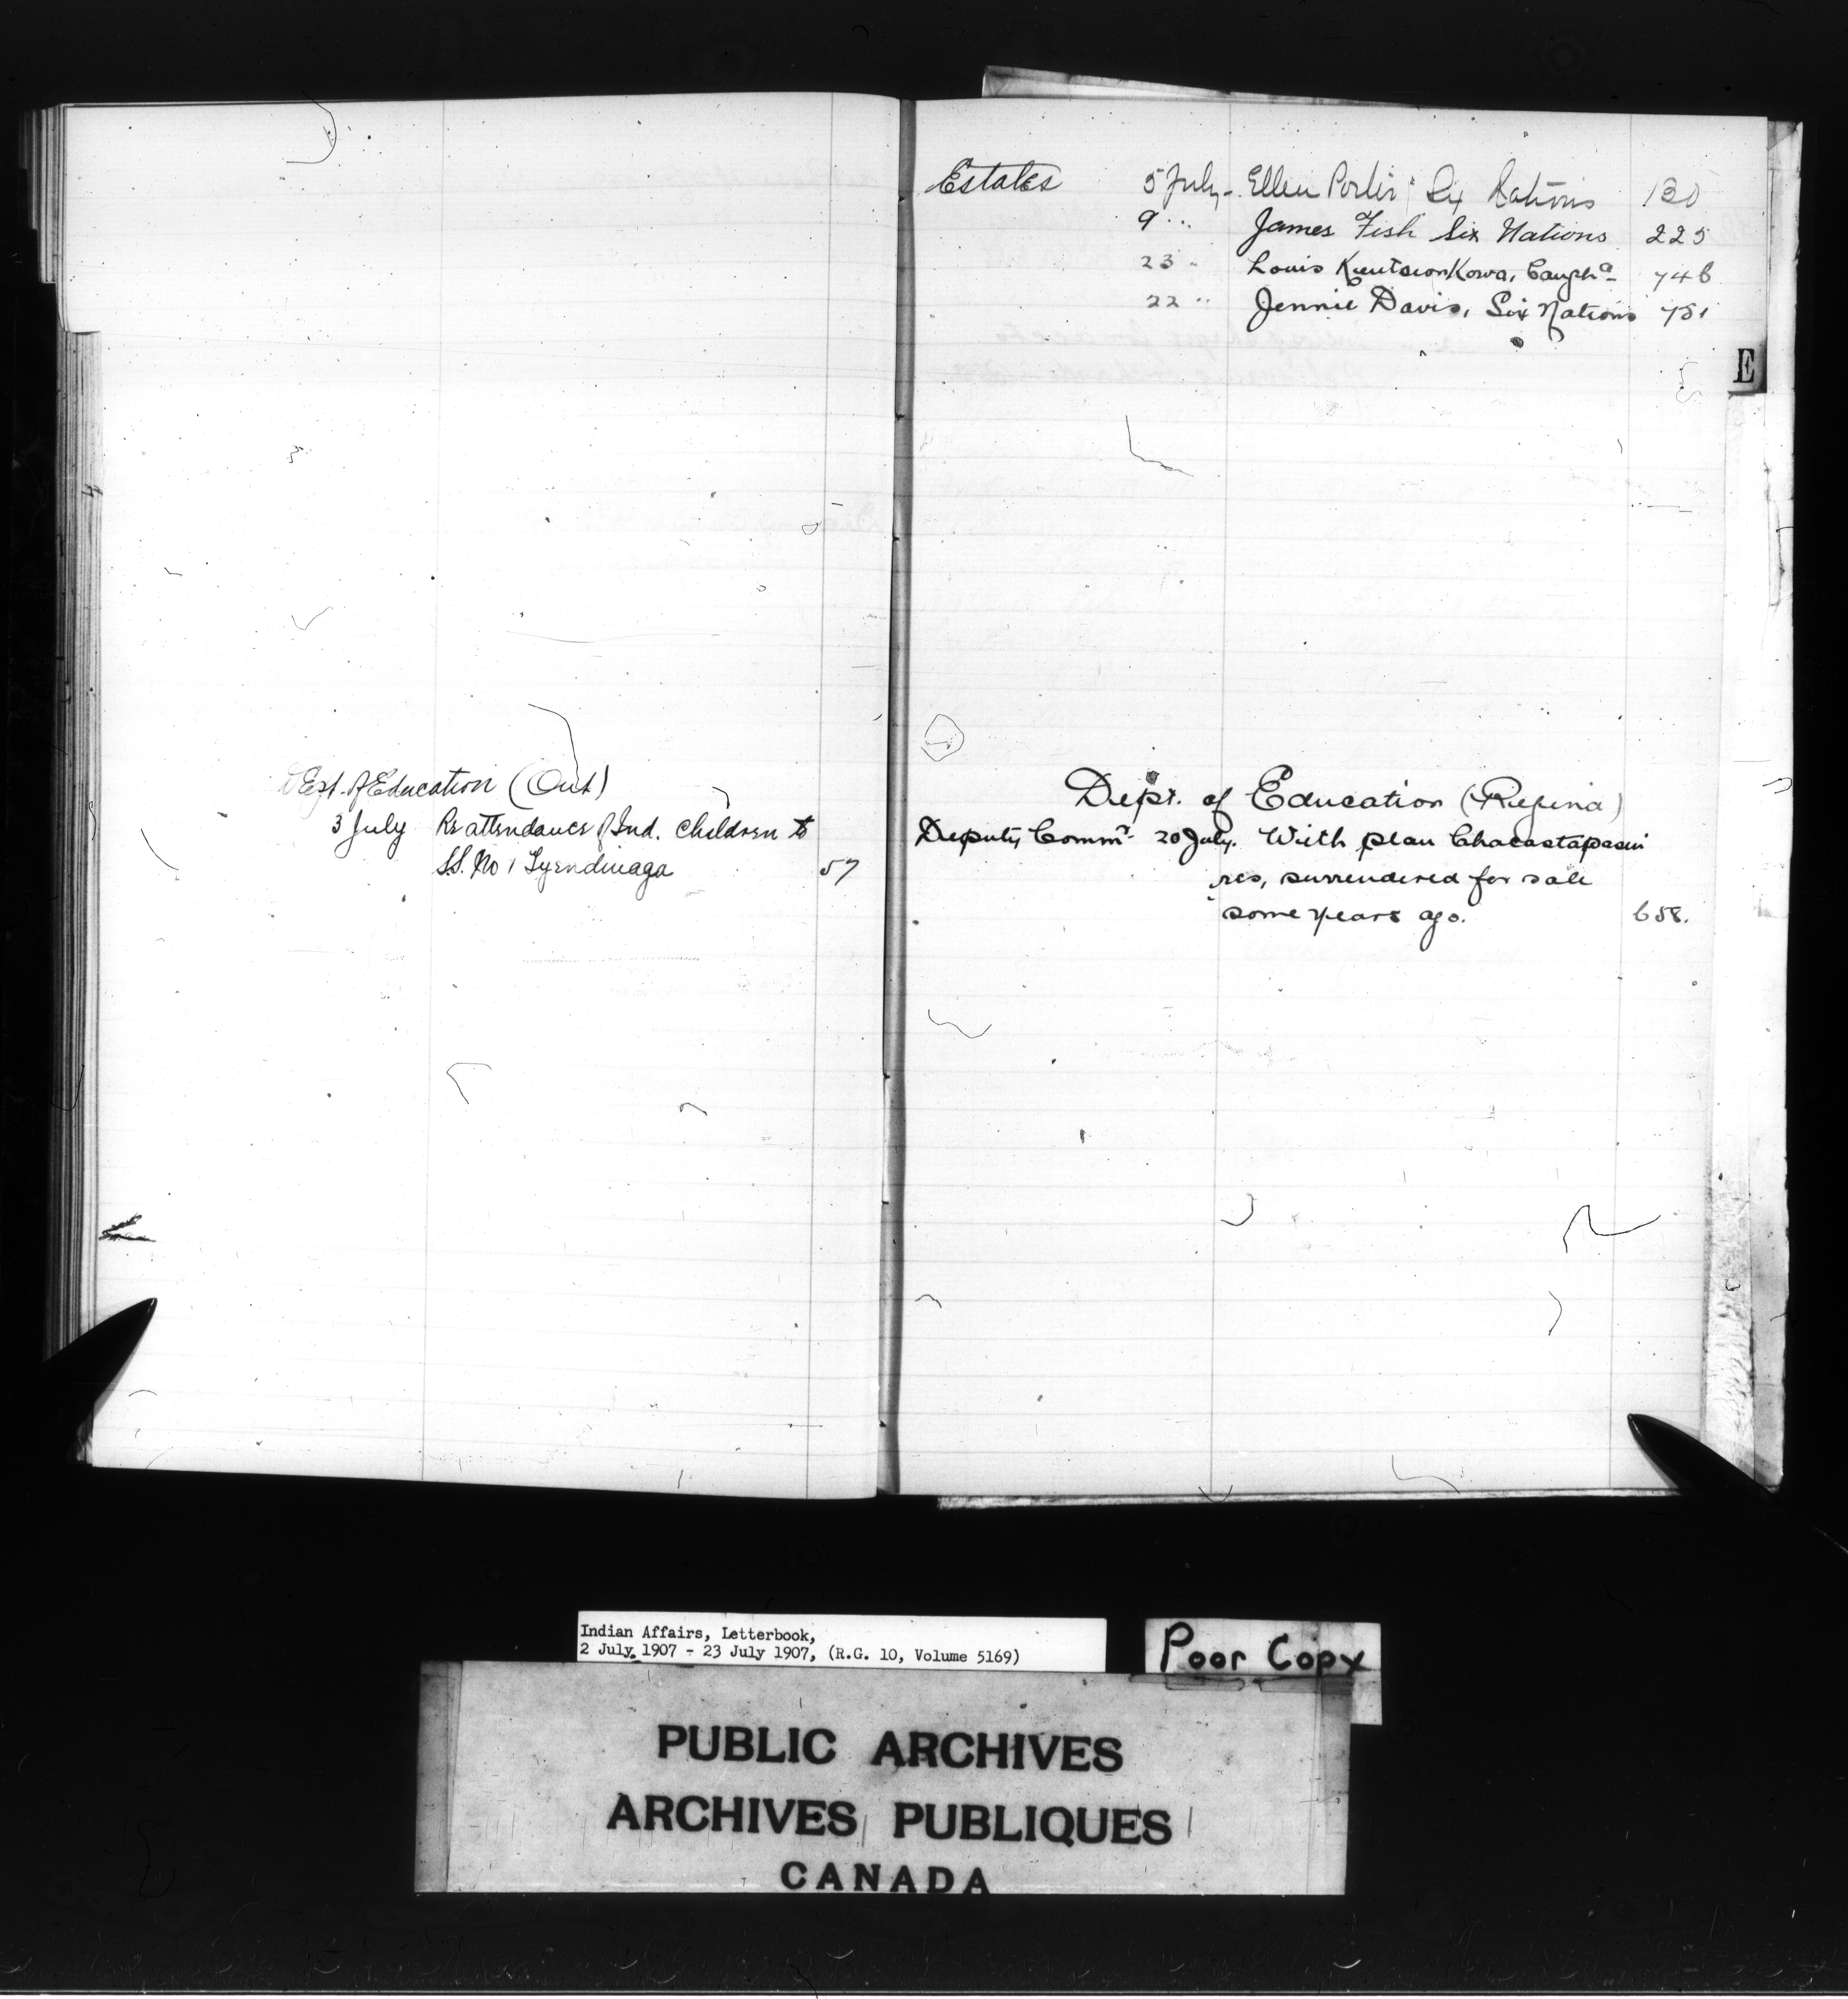 Dept. of Education (Ont)
3 July Re attendance of Ind. children to
S.S. No 1 Tyendinaga 57
Estates 5 July - Ellen Porter Six Nations 130
9 " James Fish Six Nations 225
23 " Louis Caugha 746
22 " Jennie Davis, Six Nations 751
E
Dept. of Education (Regina)
Deputy Commr 20 July. With plan Chacastapasin
res, surrendered for sale
some years ago. 658.
Indian Affairs, Letterbook,
2 July 1907 - 23 July 1907, (R.G. 10, Volume 5169)
Poor Copy
PUBLIC ARCHIVES
ARCHIVES PUBLIQUES
CANADA